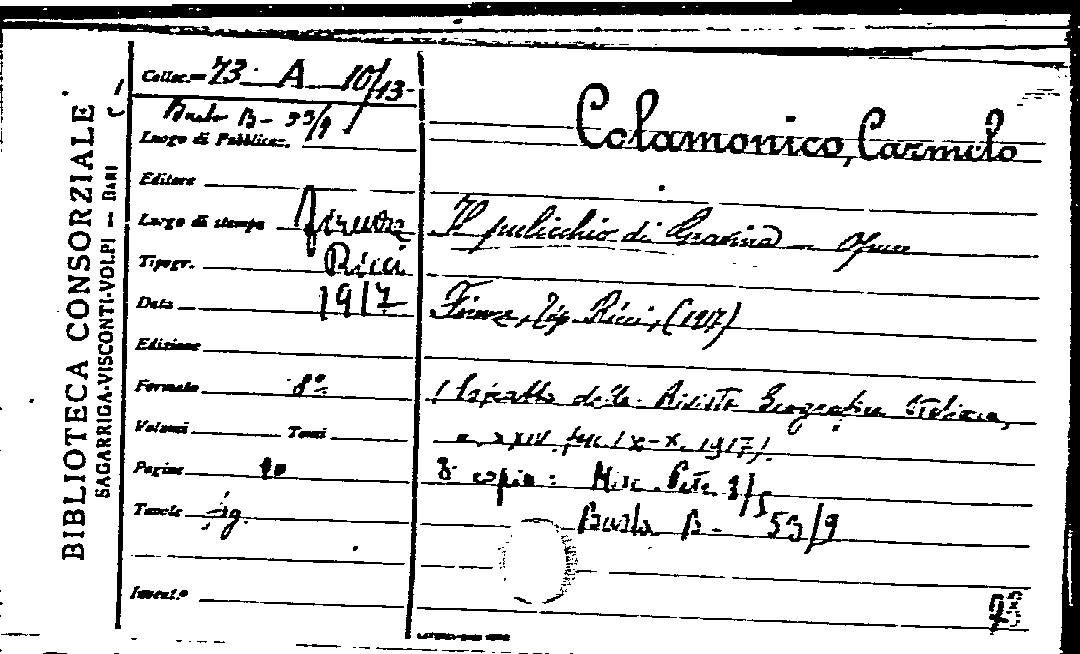 BIBLIOTECA CONSORZIALE
SAGARRIGA-VISCONTI-VOLPI — BARI
Colloc.— 73 A 10/13
Busta B - 53/9
Luogo di Pubblicaz.
Editore
Luogo di stampa Firenze
Tipogr. Ricci
Data 1917
Edizione
Formato 8º
Volumi Tomi
Pagine
Tavole fig.
Invent.º
Colamonico, Carmelo
Il pulicchio di Gravina — Opusc
Firenze, Tip. Ricci, (1917)
(Estratto dalla Rivista Geografica Italiana,
a. XXIV, fasc. IX-X, 1917).
copia: Misc. 
Busta B - 53/9